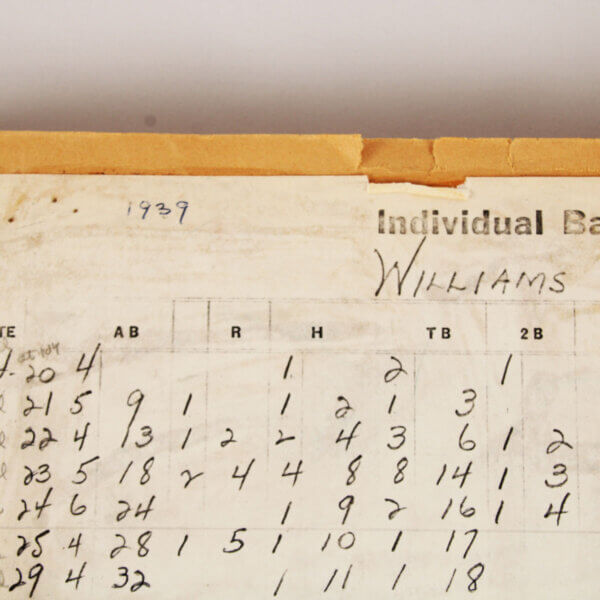 1939
Individual Ba
WILLIAMS
TE AB R H TB 2B
4-20 4 1 2 1
21 5 9 1 1 2 1 3
22 4 13 1 2 2 4 3 6 1 2
23 5 18 2 4 4 8 8 14 1 3
24 6 24 1 9 2 16 1 4
25 4 28 1 5 1 10 1 17
29 4 32 1 11 1 18